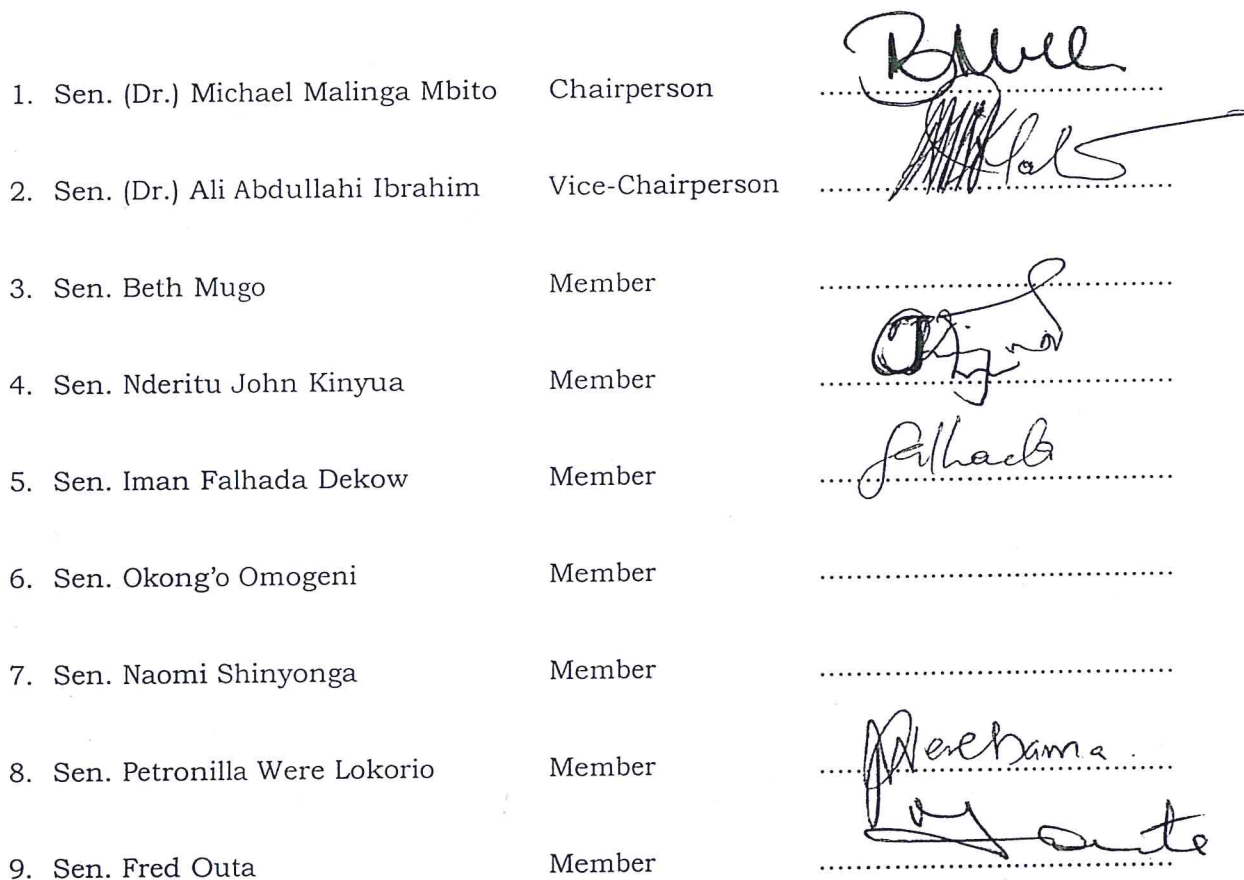 1. Sen. (Dr.) Michael Malinga Mbito Chairperson ..............................
2. Sen. (Dr.) Ali Abdullahi Ibrahim Vice-Chairperson ..............................
3. Sen. Beth Mugo Member ..............................
4. Sen. Nderitu John Kinyua Member ..............................
Falhada
5. Sen. Iman Falhada Dekow Member ..............................
6. Sen. Okong'o Omogeni Member ..............................
7. Sen. Naomi Shinyonga Member ..............................
8. Sen. Petronilla Were Lokorio Member ..............................
9. Sen. Fred Outa Member ..............................